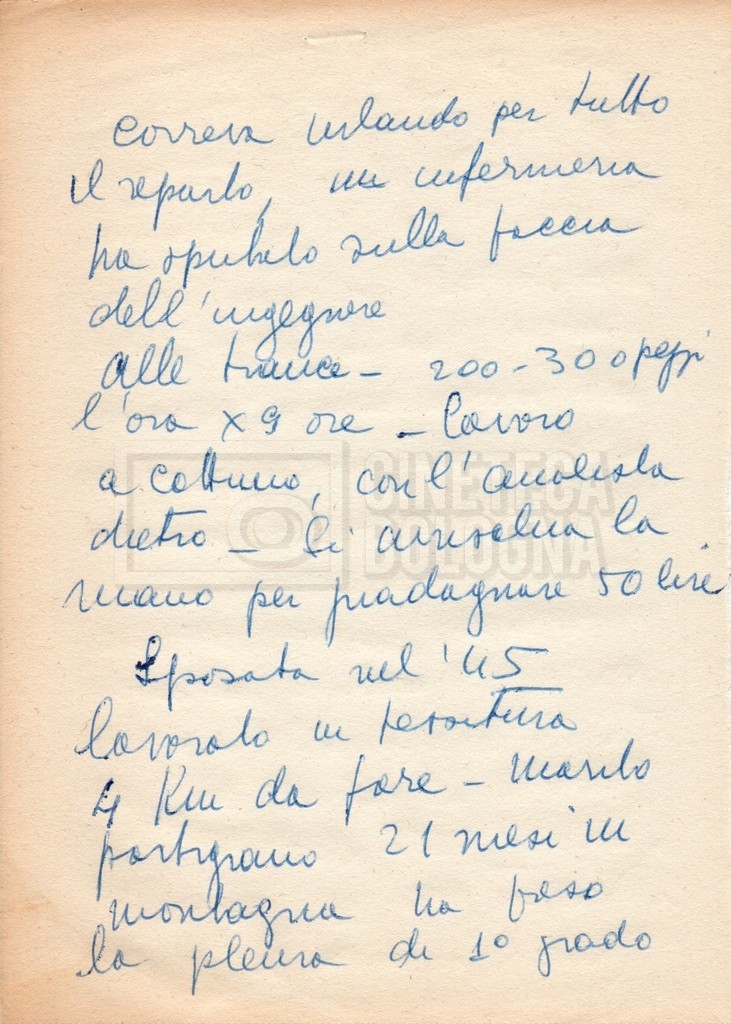 correva urlando per tutto
il reparto, in infermeria
ha sputato sulla faccia
dell'ingegnere
alle trance - 200-300 pezzi
l'ora x 9 ore - lavoro
a cottimo, con l'analista
dietro - Si arrischia la
mano per guadagnare 50 lire
Sposata nel '45
lavorato in tessitura
4 Km da fare - Marito
partigiano 21 mesi in
montagna ha preso
la pleura di 1° grado
CINETECA
BOLOGNA